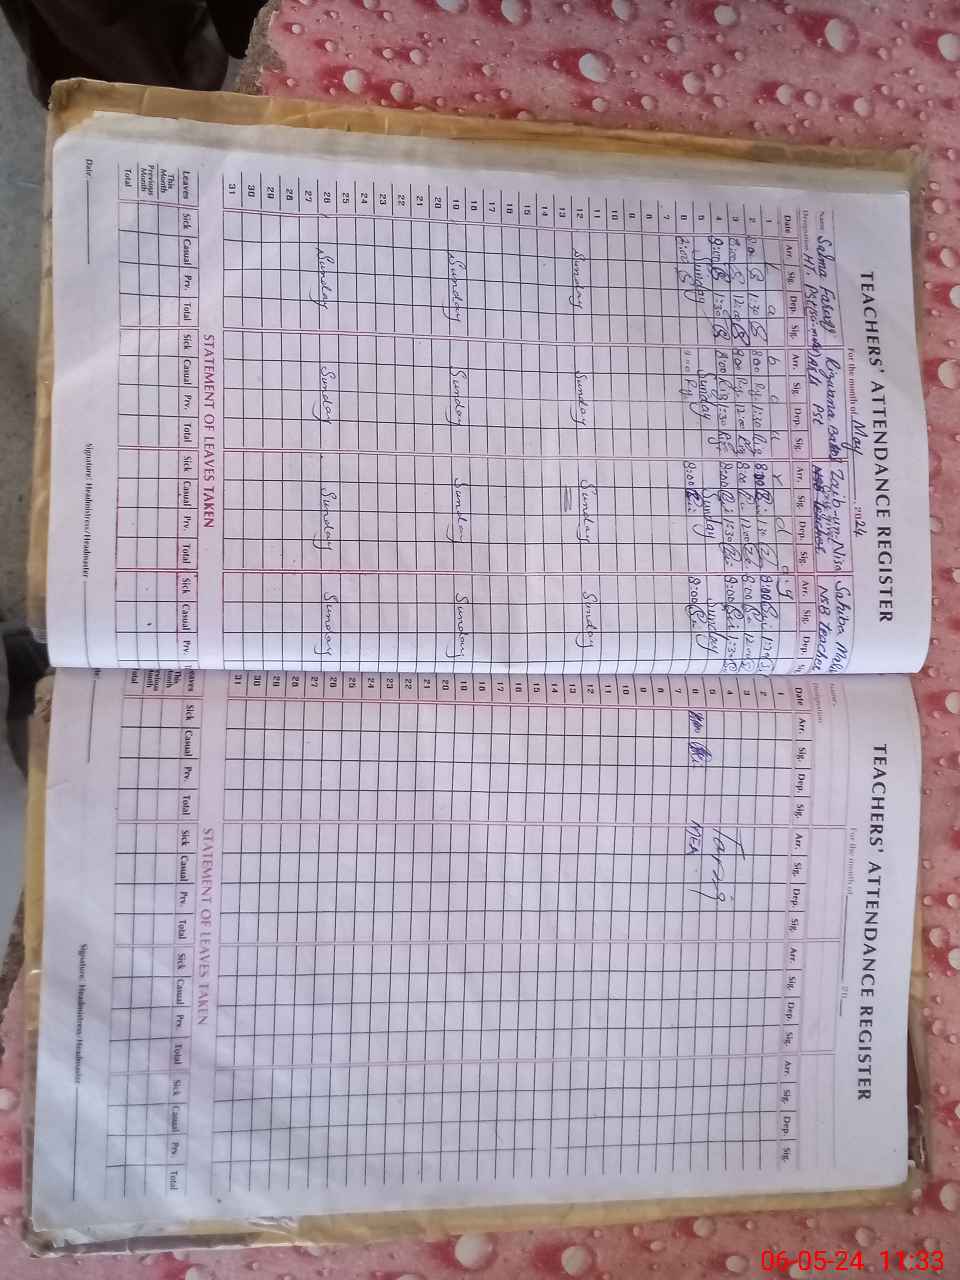 TEACHERS' ATTENDANCE REGISTER
For the month of May 2024
Name Salma Farugi Rizwana Bano Zaib-un-Nisa Sahiba
Designation HT. PST PST NSB teacher
Date Arr. Sig. Dep. Sig. Arr. Sig. Dep. Sig. Arr. Sig. Dep. Sig. Arr. Sig. Dep.
1 Labour day
2 8:00 1:30 8:00 1:30 8:00 1:30 8:00 1:30
3 8:00 12:00 8:00 12:00 8:00 12:00 8:00 12:00
4 8:00 1:30 8:00 1:30 8:00 1:30 8:00 1:30
5 Sunday Sunday Sunday Sunday
6 8:00 8:00 8:00 8:00
7
8
9
10
11
12 Sunday Sunday Sunday Sunday
13
14
15
16
17
18
19 Sunday Sunday Sunday Sunday
20
21
22
23
24
25
26 Sunday Sunday Sunday Sunday
27
28
29
30
31
STATEMENT OF LEAVES TAKEN
Leaves Sick Casual Prv. Total Sick Casual Prv. Total Sick Casual Prv. Total Sick Casual Prv.
This Month
Previous Month
Total
Date: Signature: Headmistress/Headmaster
TEACHERS' ATTENDANCE REGISTER
For the month of 20
Name
Designation
Date Arr. Sig. Dep. Sig. Arr. Sig. Dep. Sig. Arr. Sig. Dep. Sig. Arr. Sig. Dep. Sig.
1
2
3
4
5 Tariq
6 MEA
7
8
9
10
11
12
13
14
15
16
17
18
19
20
21
22
23
24
25
26
27
28
29
30
31
STATEMENT OF LEAVES TAKEN
Leaves Sick Casual Prv. Total Sick Casual Prv. Total Sick Casual Prv. Total Sick Casual Prv. Total
This Month
Previous Month
Total
Signature: Headmistress/Headmaster
06-05-24 11:33